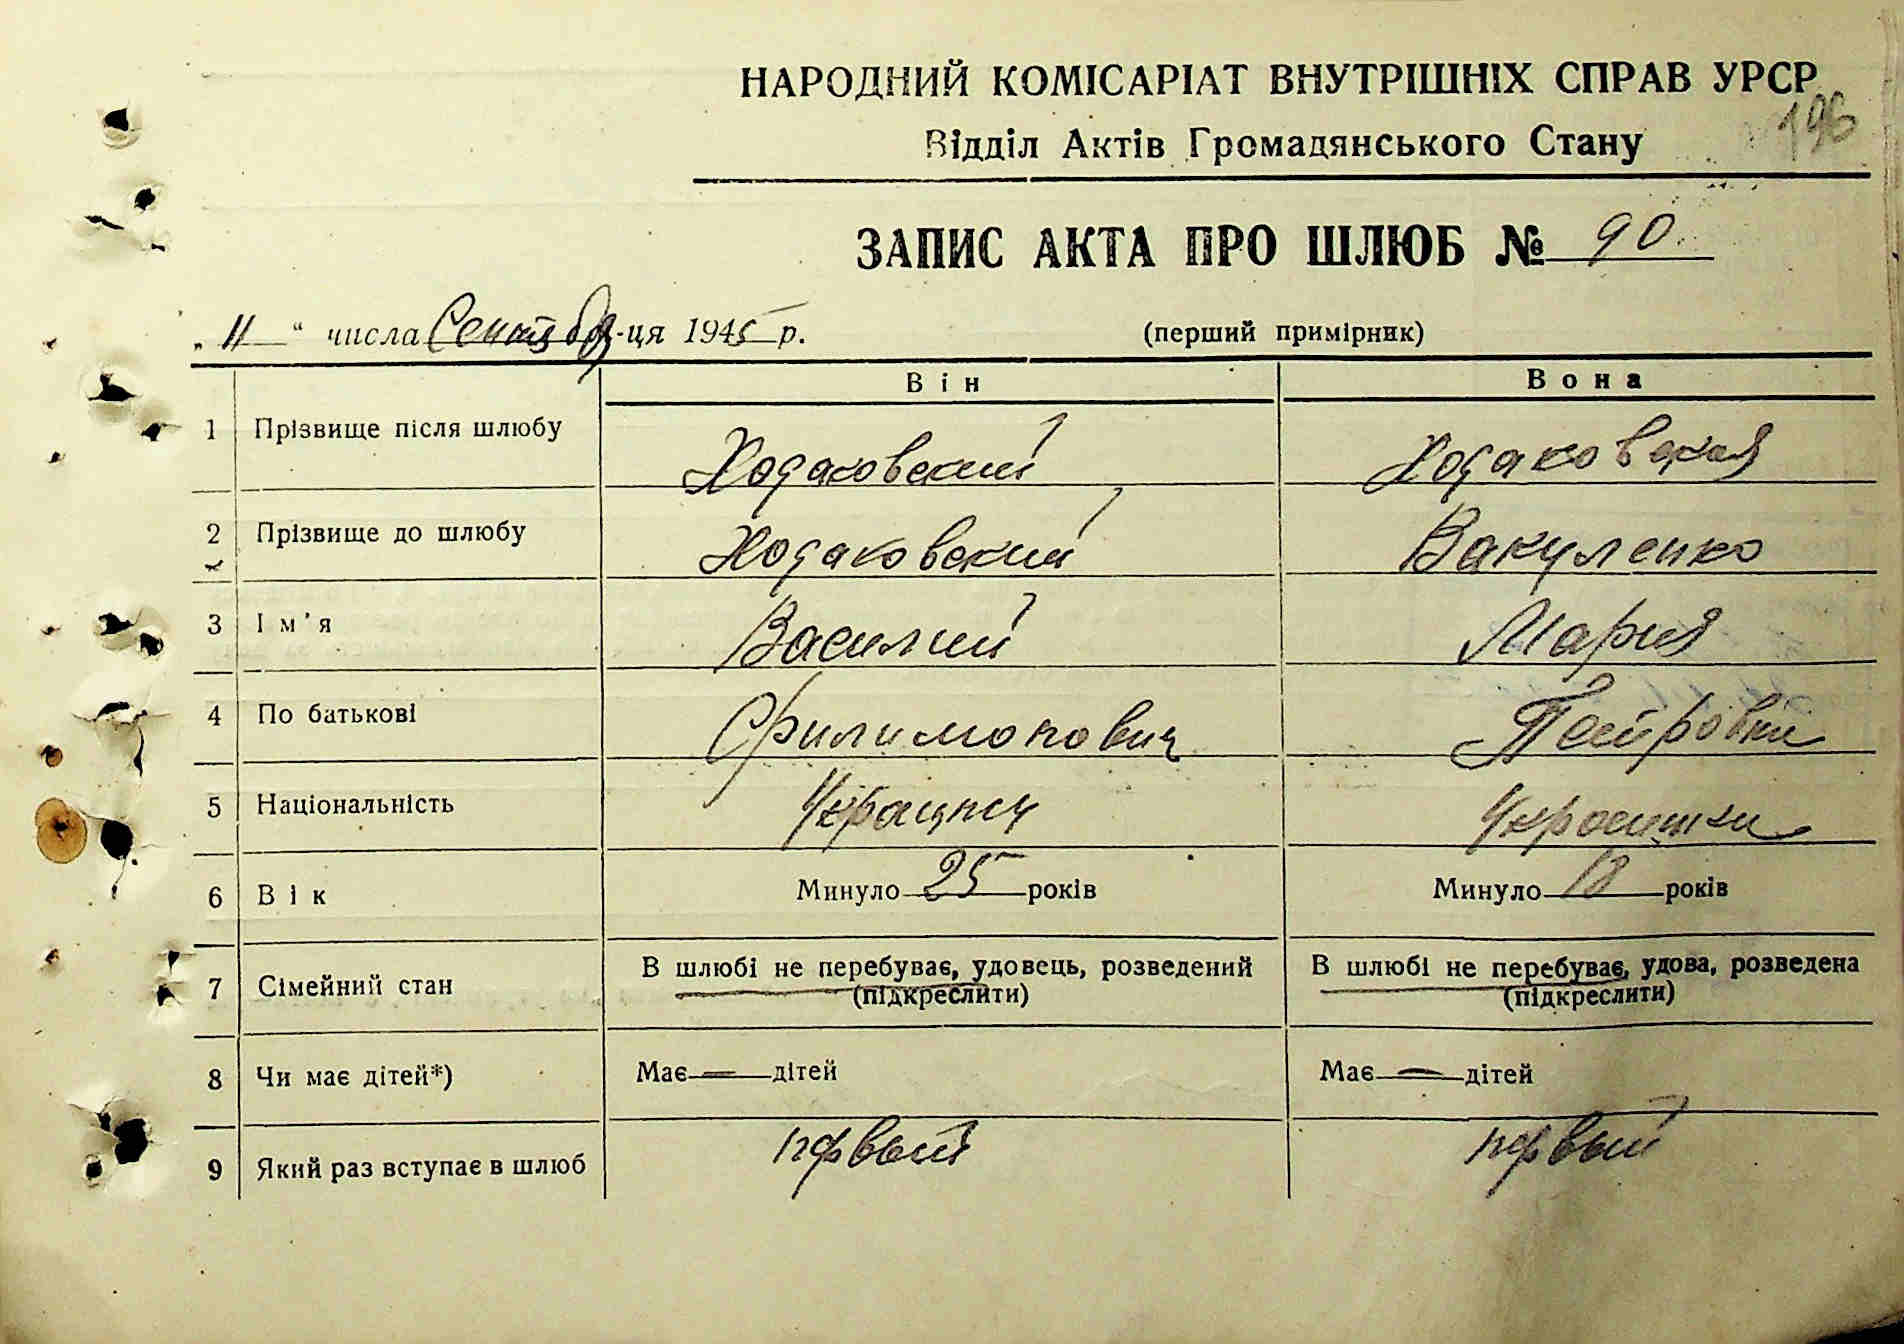 НАРОДНИЙ КОМІСАРІАТ ВНУТРІШНІХ СПРАВ УРСР
196
Відділ Актів Громадянського Стану
ЗАПИС АКТА ПРО ШЛЮБ № 90
„11“ числа Сентября-ця 1945 р. (перший примірник)
Він Вона
1 Прізвище після шлюбу Ходаковский Ходаковская
2 Прізвище до шлюбу Ходаковский Вакуленко
3 Ім'я Василий Мария
4 По батькові Филимонович Петровна
5 Національність Украинец Украинка
6 Вік Минуло 25 років Минуло 18 років
7 Сімейний стан В шлюбі не перебуває, удовець, розведений В шлюбі не перебуває, удова, розведена
(підкреслити) (підкреслити)
8 Чи має дітей*) Має — дітей Має — дітей
9 Який раз вступає в шлюб первый первый